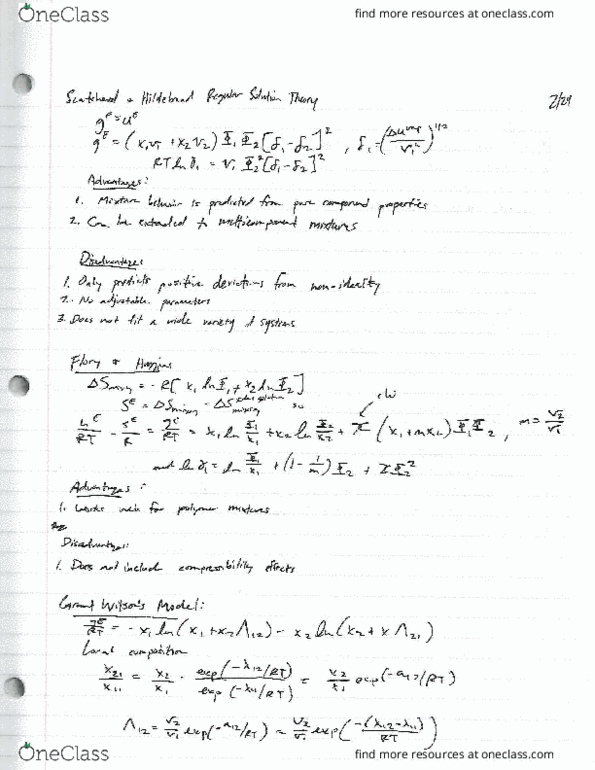 OneClass
find more resources at oneclass.com
Scatchard & Hildebrand Regular Solution Theory
2/29
g^E = u^E
g^E = (x₁v₁ + x₂v₂) Φ₁Φ₂[δ₁-δ₂]², δ₁ = (Δu^vap/v₁^L)^1/2
RT ln γ₁ = v₁ Φ₂²[δ₁-δ₂]²
Advantages:
1. Mixture behavior is predicted from pure component properties
2. Can be extended to multicomponent mixtures
Disadvantages:
1. Only predicts positive deviations from non-ideality
2. No adjustable parameters
3. Does not fit a wide variety of systems
Flory & Huggins
ΔS mixing = -R[x₁ ln Φ₁ + x₂ ln Φ₂]
S^E = ΔS mixing - ΔS mixing so
h^E/RT - S^E/R = g^E/RT = x₁ ln Φ₁/x₁ + x₂ ln Φ₂/x₂ + χ (x₁ + mx₂) Φ₁Φ₂, m = v₂/v₁
and ln γ₁ = ln Φ₁/x₁ + (1 - 1/m) Φ₂ + χΦ₂²
Advantages:
1. Works well for polymer mixtures
Disadvantages:
1. Does not include compressibility effects
Grant Wilson's Model:
g^E/RT = -x₁ ln(x₁ + x₂ Λ₁₂) - x₂ ln(x₂ + x Λ₂₁)
Local composition
x₂₁/x₁₁ = x₂/x₁ · exp(-λ₁₂/RT)/exp(-λ₁₁/RT) = x₂/x₁ exp(-a₁₂/RT)
Λ₁₂ = v₂/v₁ exp(-a₁₂/RT) = v₂/v₁ exp(-(λ₁₂-λ₁₁)/RT)
OneClass
find more resources at oneclass.com